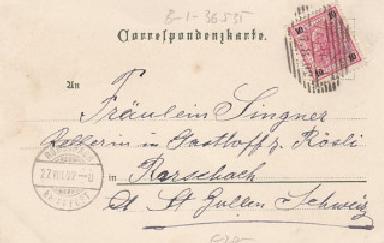 B-1-36531
Correspondenzkarte.
10 10
An
Fräulein Singner
Kellerin in Gasthoff z. Rösli
in Rorschach
Ct. St Gallen Schweiz
BRIEFEXP.